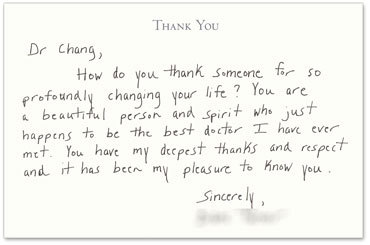 THANK YOU
Dr Chang,
How do you thank someone for so
profoundly changing your life? You are
a beautiful person and spirit who just
happens to be the best doctor I have ever
met. You have my deepest thanks and respect
and it has been my pleasure to know you.
Sincerely,